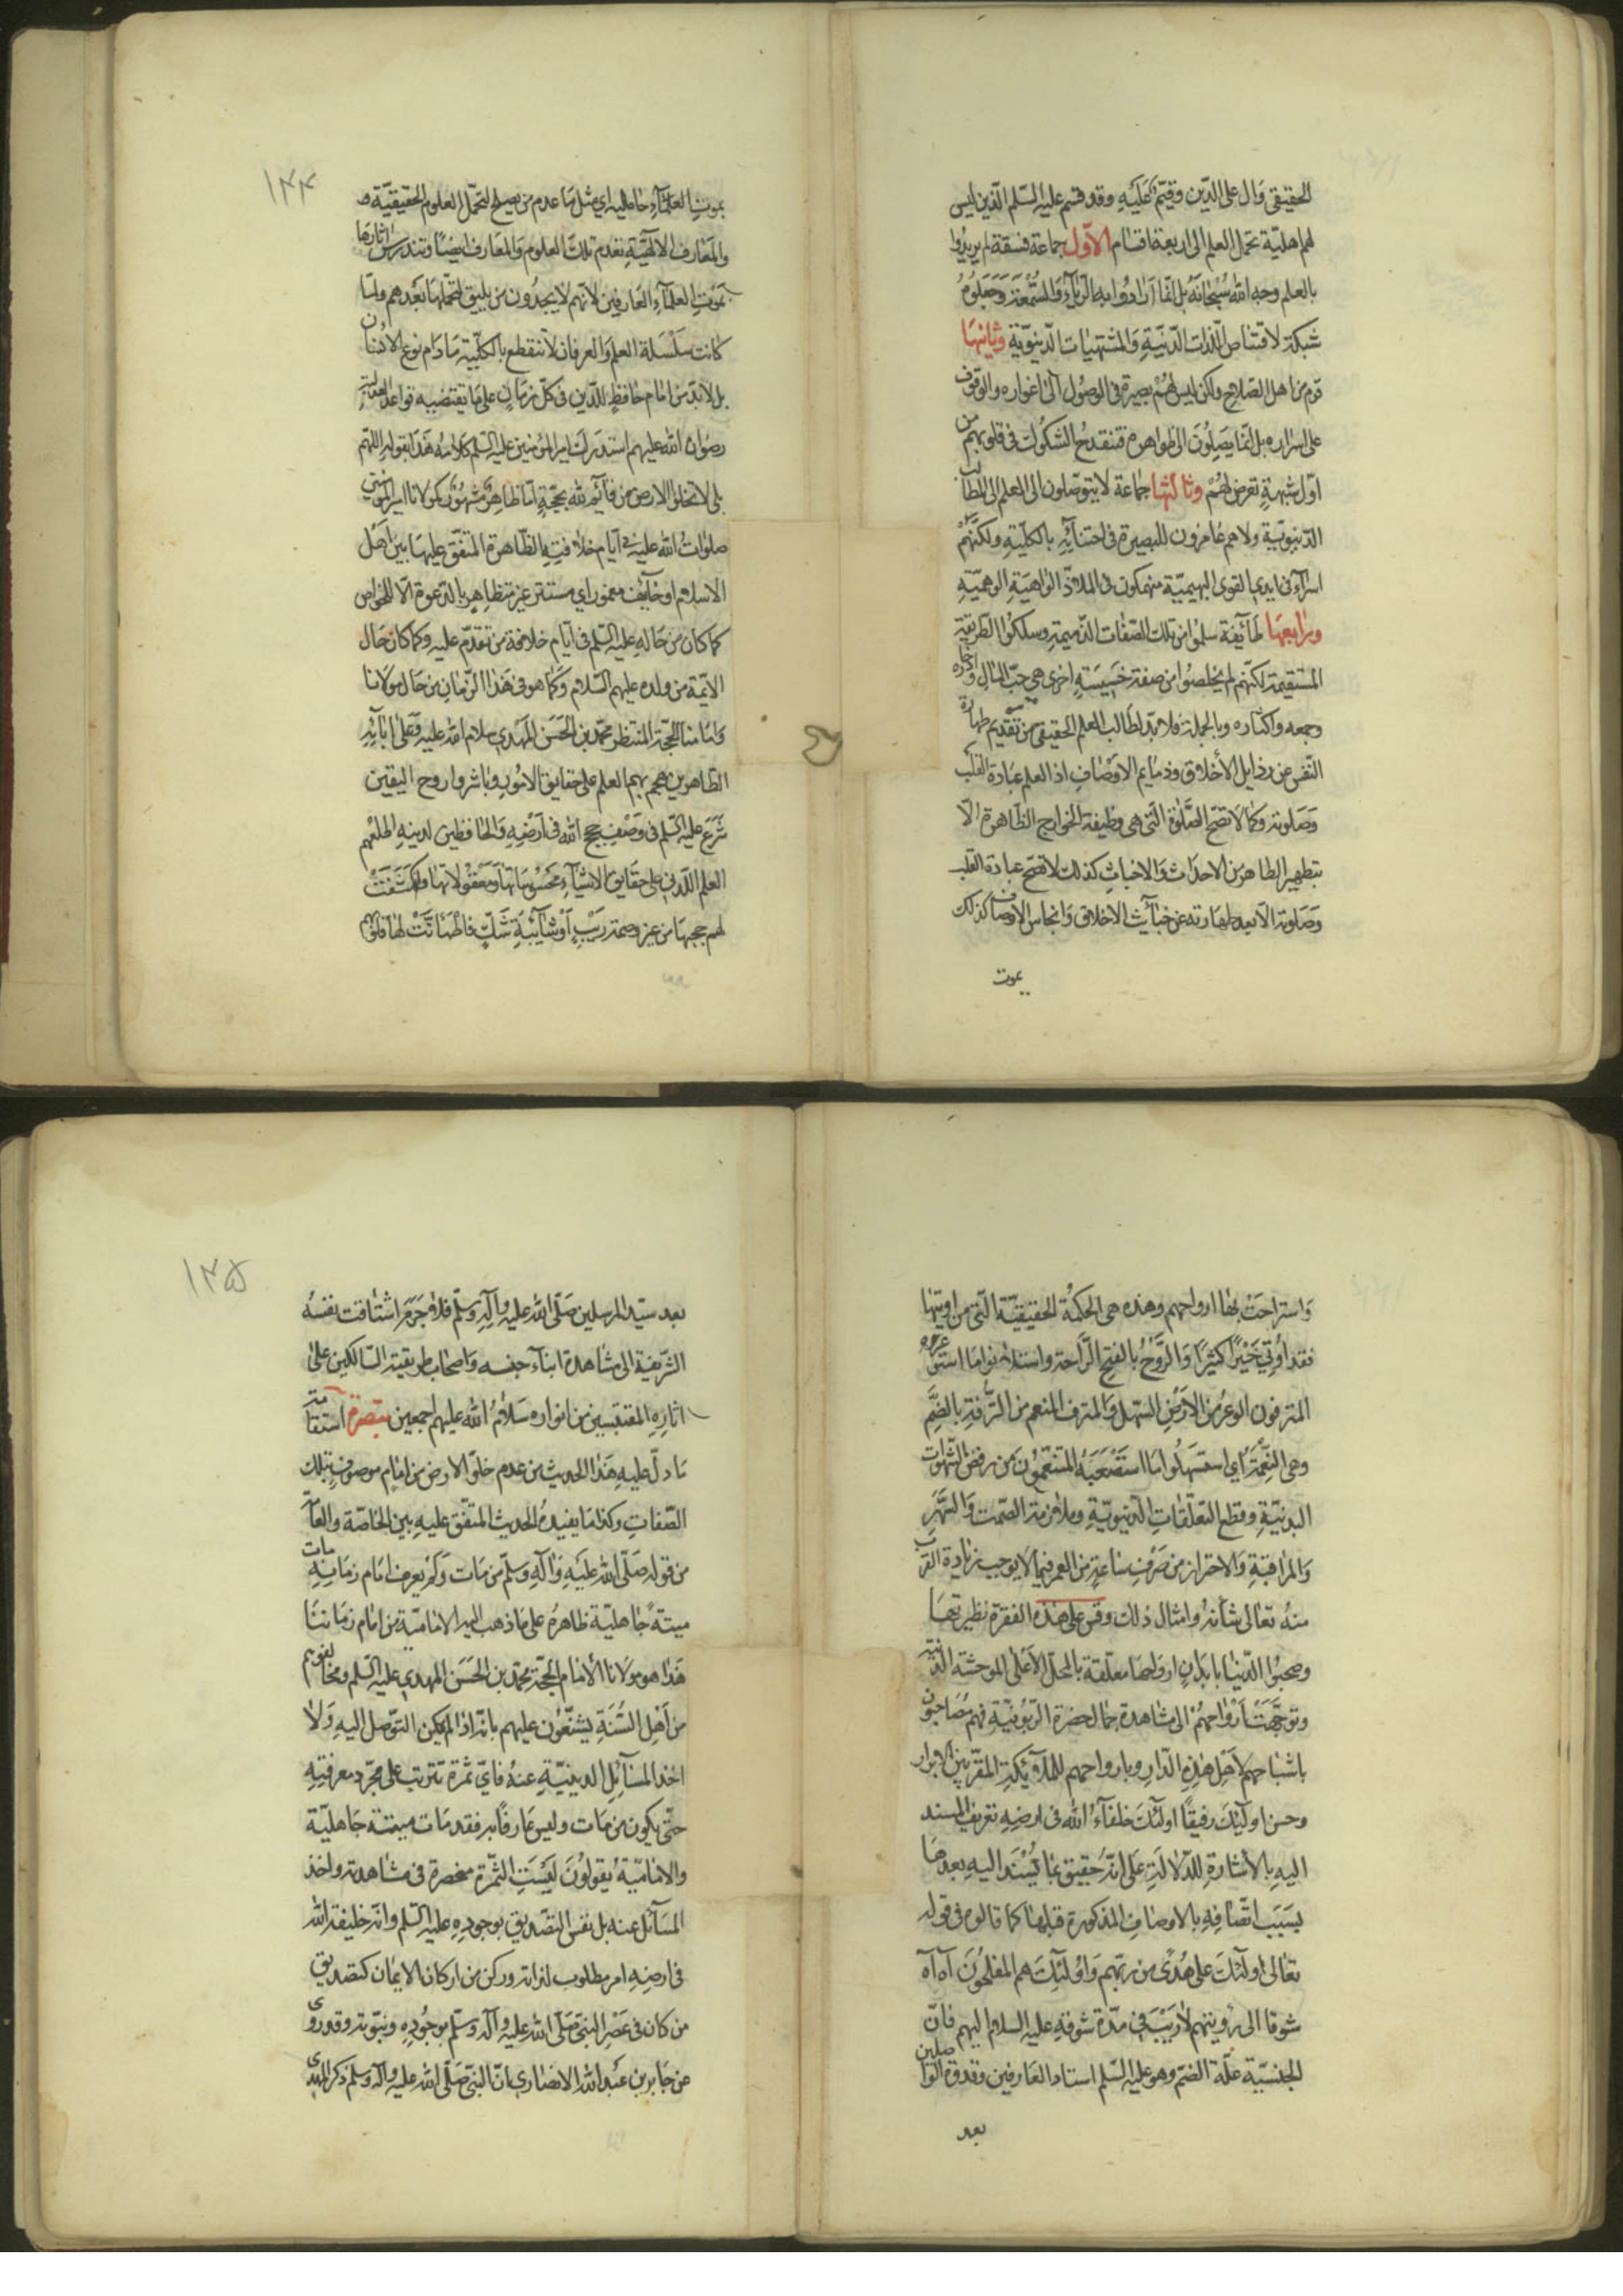 الحقيقى وال على الدّين وقيّم عليه وقد قسّم عليه السّلم الّذين ليس
لهم اهليّة تحمّل العلم الى اربعة اقسام الاوّل جماعة فسقة لم يريدوا
بالعلم وجه الله سُبْحانه بل انّما ارادوا به الرّياءَ والسُّمْعَة وجعلوهُ
شبكة لاقتناص اللّذات الدّنيّة والمشتهيات الدّنيويّة وثانيها
قوم من اهل الصّلاح ولكن ليس لهُمْ بصيرة فى الوصُول الى اغواره والوقوف
على اسراره بل انّما يَصِلُوَن الى ظواهره فتنقدحُ الشكُوك فى قلوبهم من
اوّل شبهةٍ تعرض لهُمْ وثالثها جماعة لا يتوصّلون الى العلم الى المطالب
الدّنيويّة ولا هم عامرون للبصيرة فى احنائِه بالكليّة ولكنّهُمْ
اسراء فى ايدى القوى البهيميّة منهمكون فى الملاذّ الواهيَةِ الوهميّةِ
ورابعها طآئفة سلموا من تلك الصّفات الذّميمة وسلكوُا الطّريقة
المستقيمة لكنّهم لم يخلصوُا من صفة خسيسَةٍ اخرى هى حبّ المالِ وادّخاره
وجمعه واكثاره وبالجملة فلا بُدّ لطالب العلم الحقيقى من تقديم طهارة
النّفس عن رذايل الأخلاق وذمايم الاوصاف اذ العلم عبادة القلب
وصَلوته وكما لا تصحّ الصَّلوة الّتى هى وظيفة الجوارح الظّاهرة الّا
بتطهير الظاهر من الاحداث والاخباث كذلك لا تصحّ عبادة القلب
وصَلوته الّا بعد طهارته عن خبآئث الاخلاق وانجاس الاوصاف كذلك
يموت
١٣٤
بموتِ العلمآءِ حامليه اى مثل مَا عدم من يصلح لتحمّل العلوم الحقيقيّة
والمَعارف الالهيّةِ تعدم تلك العلوم والمَعارف ايضًا وتندرس اثارها
بمَوْتِ العلمآءِ العَارفين لانّهم لا يجدُون من يليق لتحمّلها بَعْدهم ولمّا
كانت سَلْسَلة العلم والعرفان لا تنقطع بالكليّة مادَام نوع الانسان
بل لا بدّ من امام حَافظٍ للدّين فى كلّ زمانٍ على ما يقتضيه قواعد العدليّة
رضوان الله عليهم استدرك امير المؤمنين عليه السّلم كلامَهُ هَذا بقوله اللّهمّ
بلى لا تخلوا الارض من قآئم لله بحجّةٍ امّا ظاهرٌ مَشْهُورٌ كمولانا امير المؤمنين
صلواتُ الله عليه فى ايّام خلافتِهِ الظّاهرة المتفّق عليها بين اهَل
الاسلام او خايف مغمور اى مستتر غير متظاهِرٍ بالدّعوة الّا للخواص
كما كان من حاله عليه السّلم فى ايّام خلافة من تقدّم عليه وكما كان حَال
الائمّة من ولده عليهم السّلام وكما هو فى هَذا الزّمان من حَال موَلانا
وامامنا الحجّة المنتظر محمّد بن الحسَن المهدى سلام الله عليه وعلى ابآئِه
الطّاهرين هجم بهم العلم على حقايق الامُور وباشروا روح اليقين
شَرَعَ عليه السّلم فى وَصْفِ حجج الله فى اَرْضِهِ والحافظين لدينهِ اطلعهم
العلم اللّدنى على حقايق الاشيآءِ محسُوساتها ومَعقوْلاتها وانكشَفَتْ
لهم حجبها من غير وصمة رَيْبٍ اَوْ شآئبةِ شكّ فاطْمَانّتْ لها قلوُبهم
واستراحَتْ بها ارواحهم وهذه هى الحكمُة الحقيقيّة الّتى من اوتيها
فقد اُوتى خَيْراً كثيرًا والرَّوْحُ بالفتح الرّاحة واستلانوا مَا استوعره
المترفون الوعُر من الاَرْضِ ضدّ السّهل والمترف المنعم من التُّرفةِ بالضَّم
وهى النِّعْمَة اى استسهلُوا مَا استَصْعَبَهُ المتنعّموُن من رفض الشّهوات
البدنيّةِ وقطع التعلّقاتِ الدّنيويّةِ وملازمة الصّمت والسَّهَرِ
والمراقبةِ والاحتراز من صَرْفِ سَاعةٍ من العمر فيما لا يوجب زيادة القرب
منهُ تعالى شأنه وامثال ذلك وقس على هذه الفقرة نظيرتها
وصحبوُا الدّنيا بابدانٍ ارواحها معلّقة بالمحلّ الاَعْلى الموحشة الدّنية
وتوجَّهَتْ اَرْواحهُمْ الى مشاهدة جمال حضرة الرّبُوبيّة فهم مُصَاحبُون
باشباحهم لاَهْل هٰذِهِ الدّارِ وبارواحهم للملآئِكةِ المقرّبين الابرار
وحسن اولٓئِك رفيقًا اولٓئك خلفآءُ الله فى ارضِهِ تعريف المسند
اليهِ بالأشارة للدّلالةِ على انّه حَقيق بما يُسْنَد اليهِ بعدها
بسَبَب اتّصَافِهِ بالاوصاف المذكورة قبلها كما قالوه فى قوله
تعالى اولٓئك على هُدًى من ربّهم وَاوُلٓئِكَ هم المفلحُونَ آه آه
شوقا الى رؤيتهم لا رَيْبَ فى شدّة شوقهِ عليه السلام اليهم فانّ
الجنسيّة علّة الضمّ وهو عليه السّلم استاد العَارفين وقدوة الواصلين
بعد
١٣٥
بعد سيّد المرسلين صَلّى الله عليه وآلِهِ وسلّم فلا جَرَم اشتاقت نفسُه
الشّريفة الى مشاهدة ابنآءِ جنسه واصحاب طريقته السّالكين على
اثارِهِ المقتبسين من انواره سَلامُ الله عليهم اجمعين تبصرة استقامة
ما دلّ عليهِ هَذا الحديث من عدم خلوّ الارض من امامٍ موصوفٍ بتلك
الصّفاتِ وكذا مَا يفيدُه الحديث المتّفق عليهِ بين الخاصّة والعامّة
من قوله صَلّى الله عَليَهِ وآلَهِ وسَلّم من مَات ولَمْ يعرف امَام زمانِهِ مات
ميتةً جاهليّة ظاهرهُ على ما ذهب اليه الاماميّة من امام زمَاننَا
هَذا هو موَلانا الأمام الحجّة محمّد بن الحسَن المهدى عليه السّلم ومخالفوهم
من اَهْلِ السُّنَةِ يشنّعُون عليهم بانّه اذا لم يمكن التّوصل اليهِ ولا
اخذ المسَآئِلِ الدينيّةِ عنهُ فاىّ ثمرة تترتب على مجّرد معرفتِهِ
حتّى يكون من مات وليس عَارفًا به فقد مات ميتتة جَاهليّة
والاماميّة يُقولوُن ليَسَتِ الثّمرة منحصرة فى مشاهدته واخذ
المسَآئل عنه بل نفس التّصديق بوجودِهِ عليه السّلم وانّه خليفة الله
فى ارضِهِ امر مطلوب لذاته وركن من اركان الايمان كتصديق
من كان فى عَصْرِ النبىّ صَلّى الله عليه وآله وسلّم بوجُودِهِ ونبوّته وقد روى
عن جَابر بن عبد الله الانصارى انّ النّبىّ صَلّى الله عليه وآله وسلم ذكر المهدى